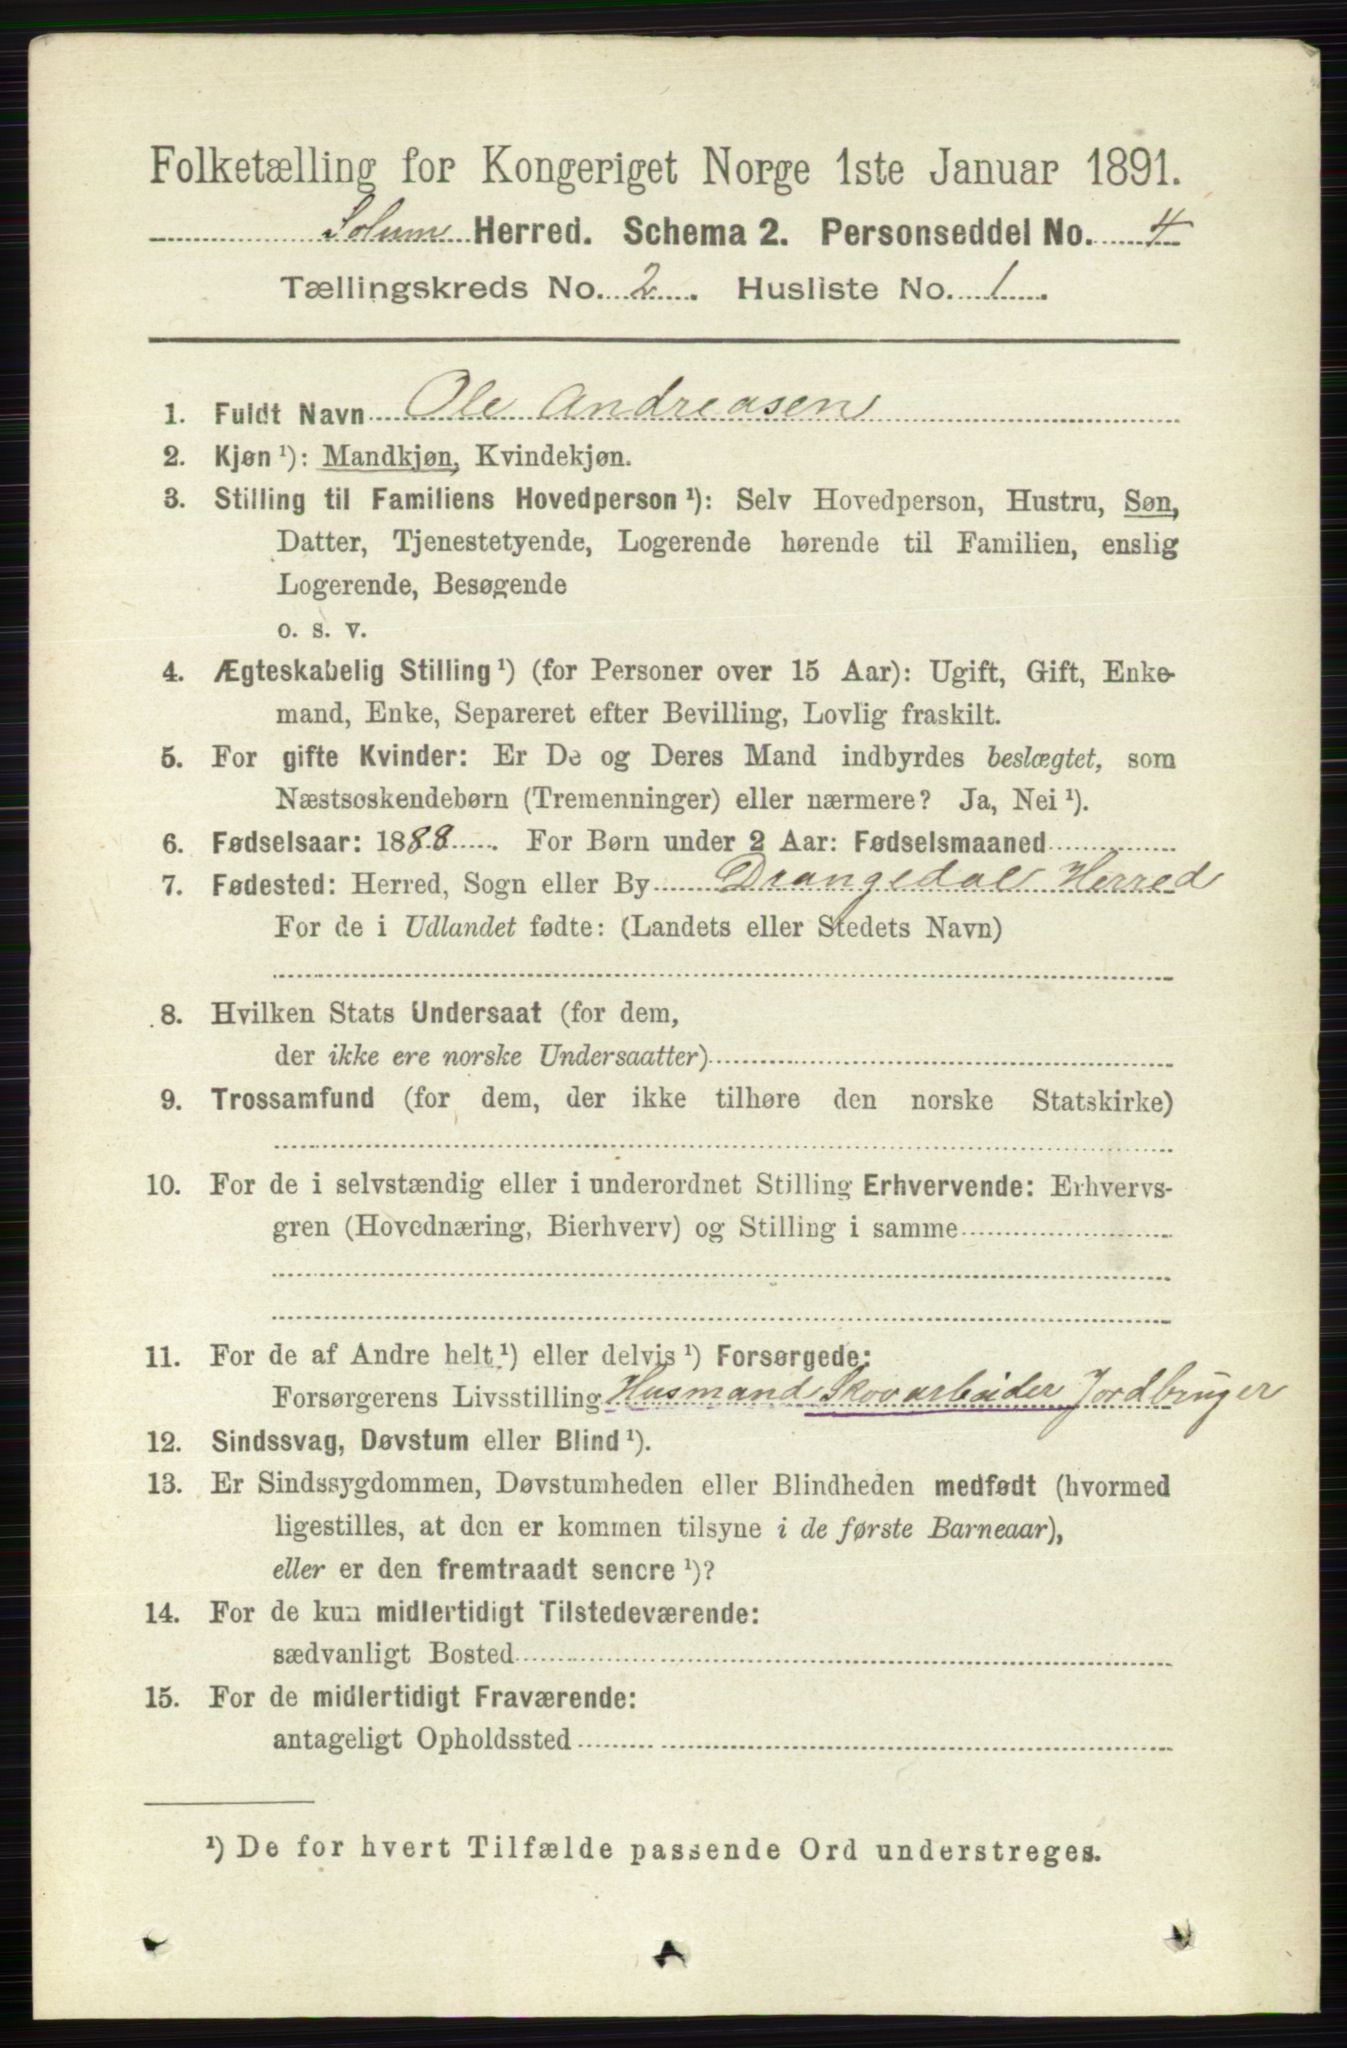 Folketælling for Kongeriget Norge 1ste Januar 1891.
Solum Herred. Schema 2. Personseddel No. 4
Tællingskreds No. 2. Husliste No. 1.
1. Fuldt Navn Ole Andreasen
2. Kjøn ¹): Mandkjøn, Kvindekjøn.
3. Stilling til Familiens Hovedperson ¹): Selv Hovedperson, Hustru, Søn,
Datter, Tjenestetyende, Logerende hørende til Familien, enslig
Logerende, Besøgende
o. s. v.
4. Ægteskabelig Stilling ¹) (for Personer over 15 Aar): Ugift, Gift, Enke-
mand, Enke, Separeret efter Bevilling, Lovlig fraskilt.
5. For gifte Kvinder: Er De og Deres Mand indbyrdes beslægtet, som
Næstsøskendebørn (Tremenninger) eller nærmere? Ja, Nei ¹).
6. Fødselsaar: 1888. For Børn under 2 Aar: Fødselsmaaned
7. Fødested: Herred, Sogn eller By Drangedal Herred
For de i Udlandet fødte: (Landets eller Stedets Navn)
8. Hvilken Stats Undersaat (for dem,
der ikke ere norske Undersaatter)
9. Trossamfund (for dem, der ikke tilhøre den norske Statskirke)
10. For de i selvstændig eller i underordnet Stilling Erhvervende: Erhvervs-
gren (Hovednæring, Bierhverv) og Stilling i samme
11. For de af Andre helt ¹) eller delvis ¹) Forsørgede:
Forsørgerens Livsstilling Husmand Skovarbeider Jordbruger
12. Sindssvag, Døvstum eller Blind ¹).
13. Er Sindssygdommen, Døvstumheden eller Blindheden medfødt (hvormed
ligestilles, at den er kommen tilsyne i de første Barneaar),
eller er den fremtraadt senere ¹)?
14. For de kun midlertidigt Tilstedeværende:
sædvanligt Bosted
15. For de midlertidigt Fraværende:
antageligt Opholdssted
¹) De for hvert Tilfælde passende Ord understreges.